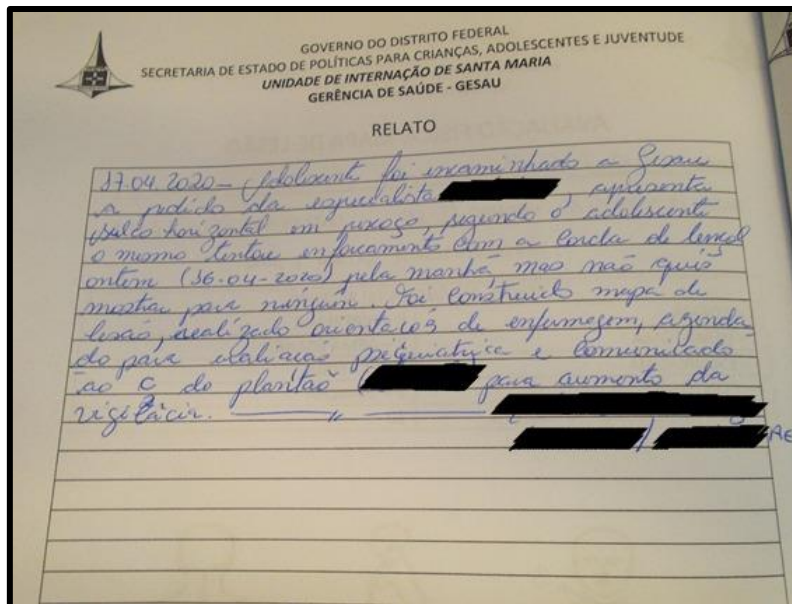 GOVERNO DO DISTRITO FEDERAL
SECRETARIA DE ESTADO DE POLÍTICAS PARA CRIANÇAS, ADOLESCENTES E JUVENTUDE
UNIDADE DE INTERNAÇÃO DE SANTA MARIA
GERÊNCIA DE SAÚDE - GESAU
RELATO
17.04.2020 - Adolescente foi encaminhado a Gesau
a pedido da especialista, apresenta
sulco horizontal em pescoço, segundo o adolescente
o mesmo tentou enforcamento com a corda de lençol
ontem (16-04-2020) pela manhã, mas não quis
mostrar para ninguém. Foi construído mapa de
lesão, realizado orientações de enfermagem, agenda
do para avaliação psiquiatrica e comunicado
ao do plantão ( para aumento da
vigilância.